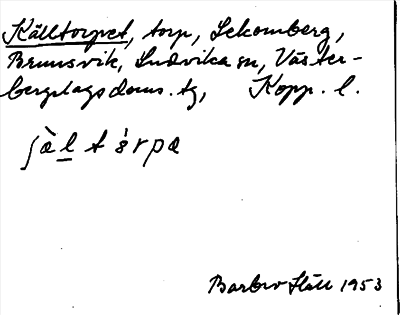 Källtorpet, torp, Lekomberg,
Brunnsvik, Ludvika sn, Väster-
bergslags doms. tg, Kopp. l.
ʃæ̀l t s̀rpa
Barbro Häll 1953